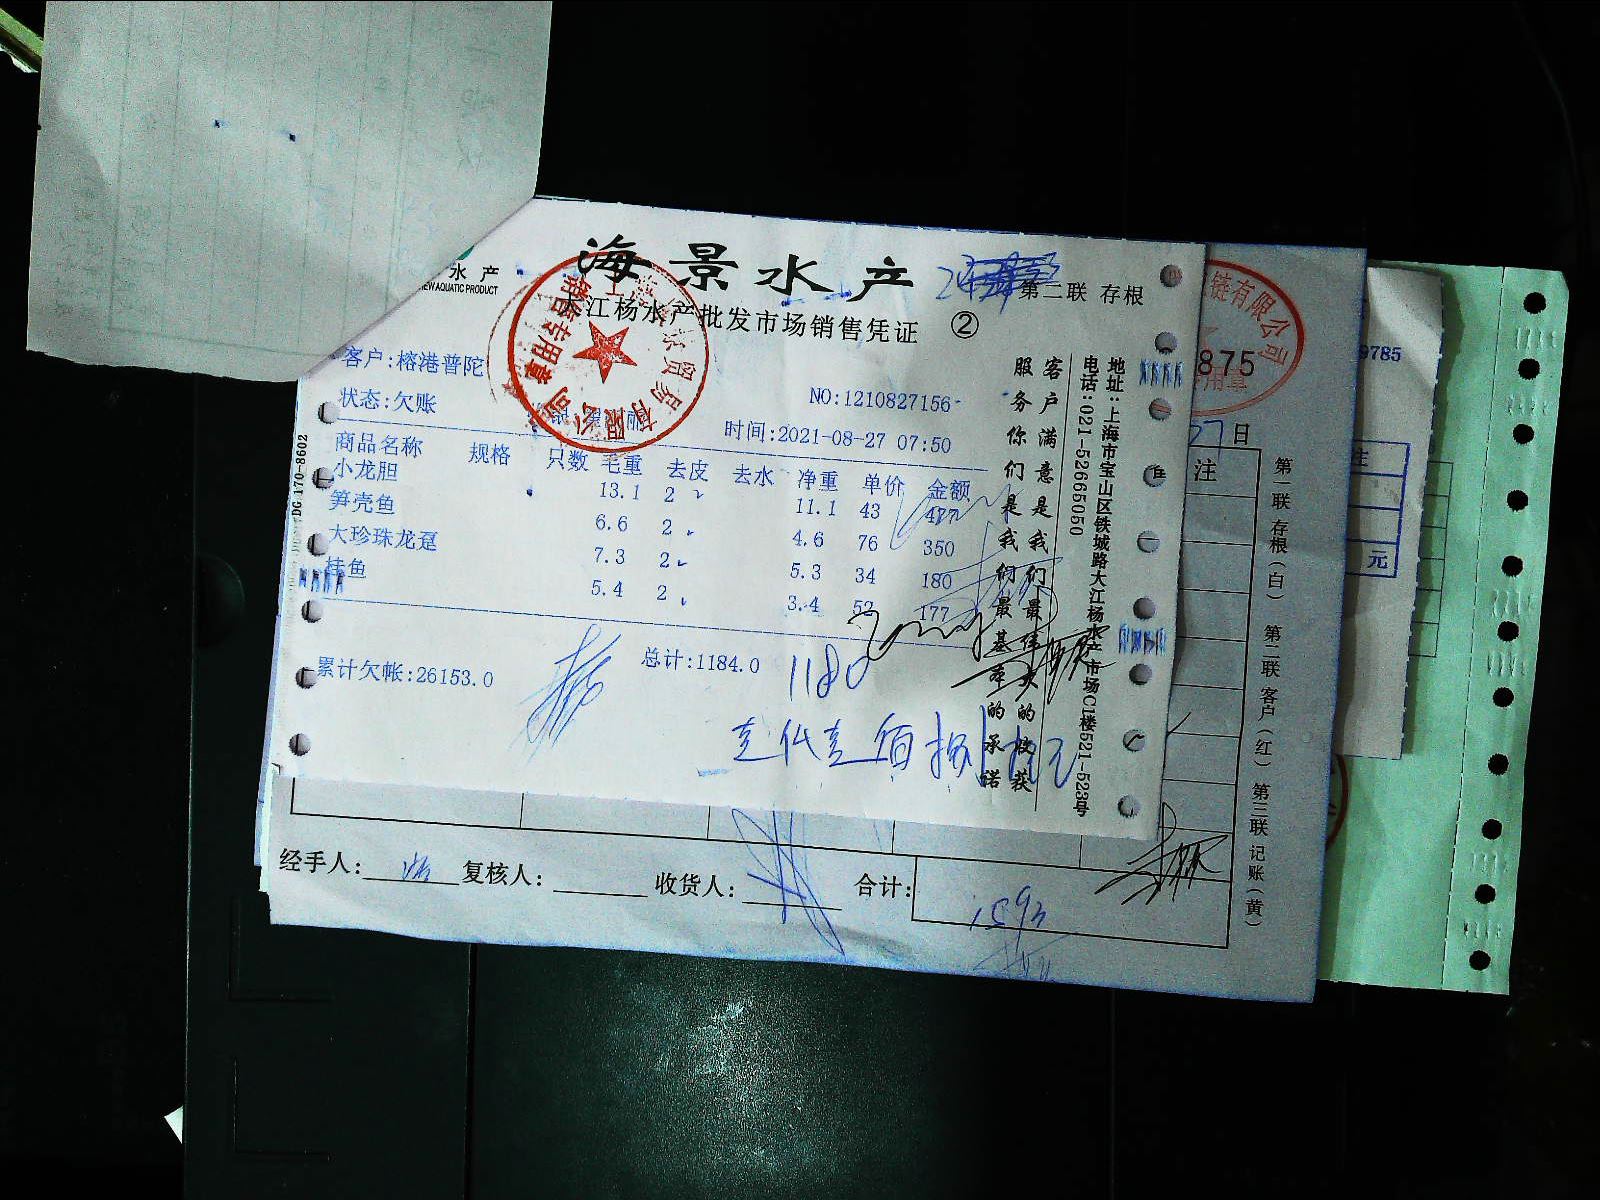 海景水产
水产
第二联 存根
江杨水产批发市场销售凭证 ②
销售专用章
贸易有限公司
客户:榕港普陀
NO:1210827156
状态:欠账
时间:2021-08-27 07:50
商品名称 规格 只数 毛重 去皮 去水 净重 单价 金额
小龙胆 13.1 2 11.1 43
笋壳鱼 6.6 2 4.6 76 350
大珍珠龙趸 7.3 2 5.3 34 180
桂鱼 5.4 2 3.4 52 177
累计欠帐:26153.0 总计:1184.0 1180
客户满意是我们最
服务你们是我们最基本的承诺
地址:上海市宝山区铁城路大江杨水产市场C1楼521-523号
电话:021-52665050
DG 170-8602
链有限公司
875
用章
日
注
第一联 存根(白) 第二联 客户(红) 第三联 记账(黄)
9785
元
经手人: 复核人: 收货人: 合计: